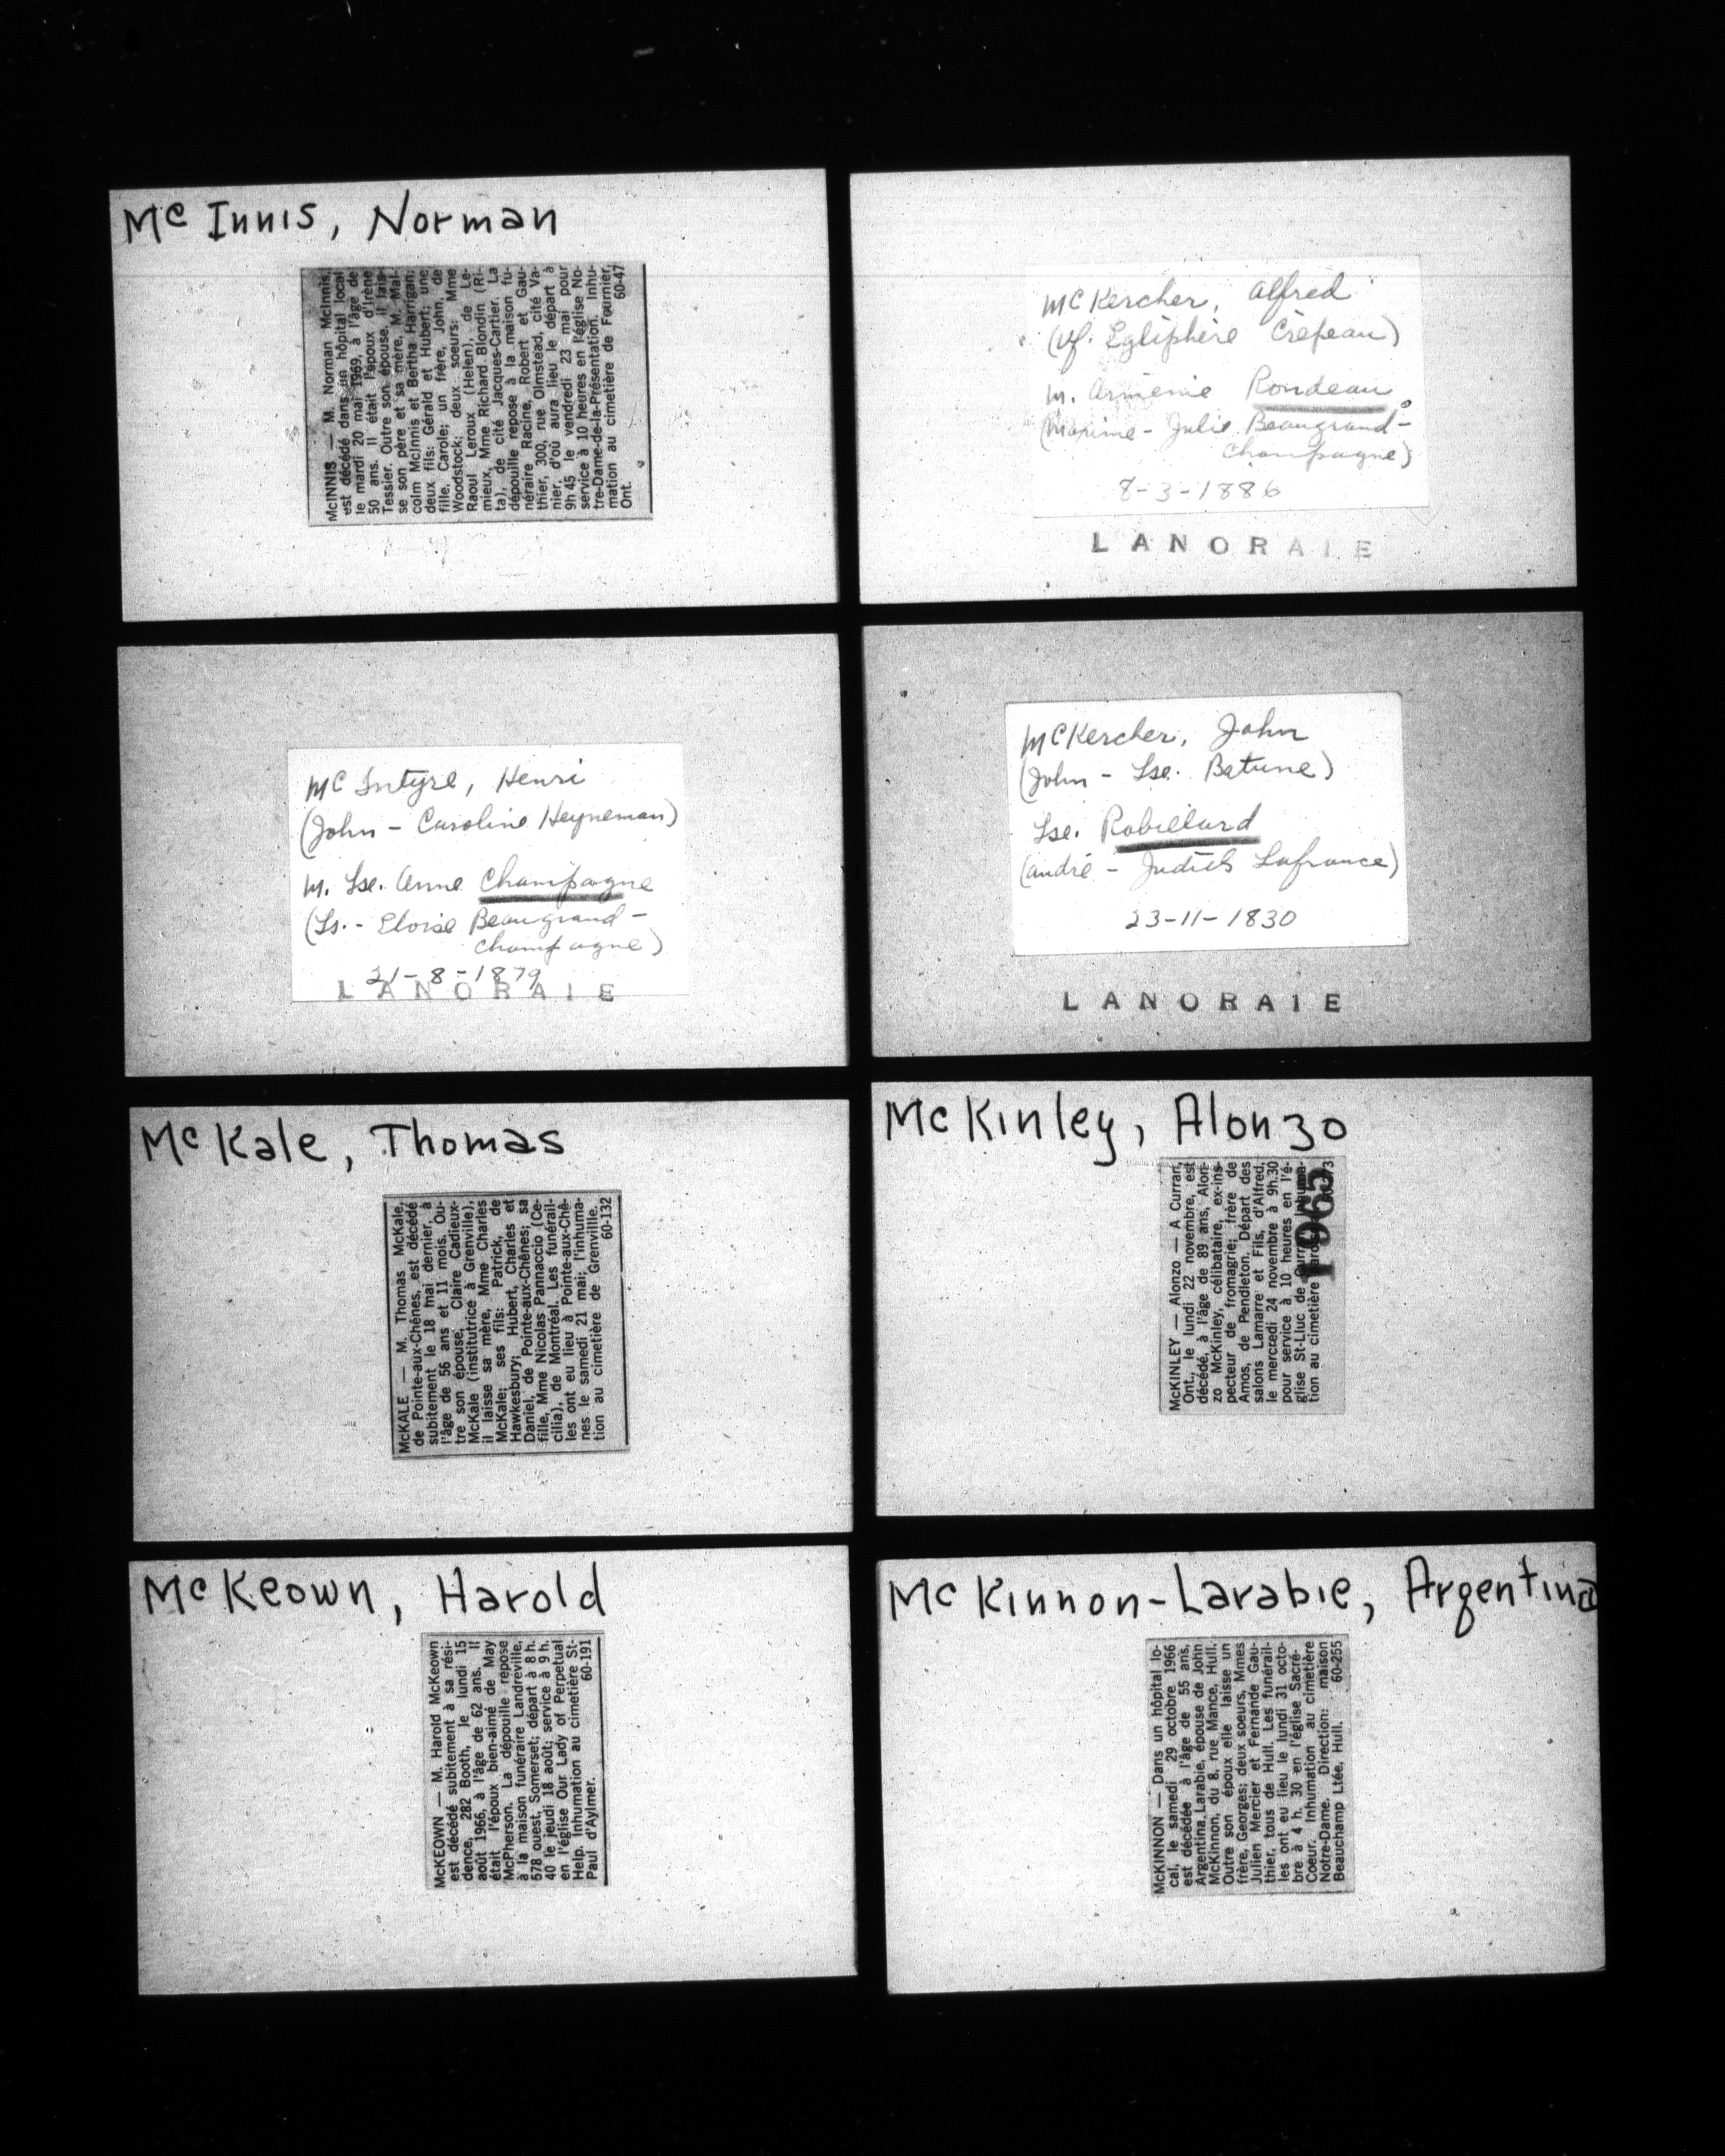 Mc Innis, Norman
McINNIS — M. Norman McInnis,
est décédé dans un hôpital local
le mardi 20 mai 1969, à l'âge de
50 ans. Il était l'époux d'Irène
Tessier. Outre son épouse, il lais-
se son père et sa mère, M. Mal-
colm McInnis et Bertha Harrigan;
deux fils: Gérald et Hubert; une
fille, Carole; un frère, John, de
Woodstock; deux soeurs: Mme
Raoul Leroux (Helen), de Le-
mieux, Mme Richard Blondin (Ri-
ta), de cité Jacques-Cartier. La
dépouille repose à la maison fu-
néraire Racine, Robert et Gau-
thier, 300, rue Olmstead, cité Va-
nier, d'où aura lieu le départ à
9h 45 le vendredi 23 mai pour
service à 10 heures en l'église No-
tre-Dame-de-la-Présentation. Inhu-
mation au cimetière de Fournier,
Ont. 60-47
McIntyre, Henri
(John - Caroline Heyneman)
M. Lse. Anne Champagne
(Ls. - Eloise Beaugrand-
Champagne)
21-8-1879
LANORAIE
McKale, Thomas
McKALE — M. Thomas McKale,
de Pointe-aux-Chênes, est décédé
subitement le 18 mai dernier, à
l'âge de 56 ans et 11 mois. Ou-
tre son épouse, Claire Cadieux-
McKale (institutrice à Grenville),
il laisse sa mère, Mme Charles
McKale; ses fils: Patrick, de
Hawkesbury; Hubert, Charles et
Daniel, de Pointe-aux-Chênes; sa
fille, Mme Nicolas Pannaccio (Ce-
cilia), de Montréal. Les funérail-
les ont eu lieu à Pointe-aux-Chê-
nes le samedi 21 mai; l'inhuma-
tion au cimetière de Grenville.
60-132
McKeown, Harold
McKEOWN — M. Harold McKeown
est décédé subitement à sa rési-
dence, 282 Booth, le lundi 15
août 1966, à l'âge de 62 ans. Il
était l'époux bien-aimé de May
McPherson. La dépouille repose
à la maison funéraire Landreville,
578 ouest, Somerset; départ à 8 h.
40 le jeudi 18 août; service à 9 h.
en l'église Our Lady of Perpetual
Help. Inhumation au cimetière St-
Paul d'Aylmer. 60-191
McKercher, Alfred
(vf. Egliphère Crépeau)
M. Arménie Rondeau
(Maxime - Julie Beaugrand-
Champagne)
8-3-1886
LANORAIE
McKercher, John
(John - Lse. Betune)
Lse. Robillard
(André - Judith Lafrance)
23-11-1830
LANORAIE
McKinley, Alonzo
McKINLEY — Alonzo — A Curran,
Ont., le lundi 22 novembre, est
décédé, à l'âge de 89 ans, Alon-
zo McKinley, célibataire, ex-ins-
pecteur de fromagrie; frère de
Amos, de Pendleton. Départ des
salons Lamarre et Fils, d'Alfred,
le mercredi 24 novembre à 9h.30
pour service à 10 heures en l'é-
glise St-Luc de Curran. Inhuma-
tion au cimetière
1965
McKinnon-Larabie, Argentina
McKINNON — Dans un hôpital lo-
cal, le samedi 29 octobre 1966
est décédée à l'âge de 55 ans,
Argentina Larabie, épouse de John
McKinnon, du 8, rue Mance, Hull.
Outre son époux elle laisse un
frère, Georges; deux soeurs, Mmes
Julien Mercier et Fernande Gau-
thier, tous de Hull. Les funérail-
les ont eu lieu le lundi 31 octo-
bre à 4 h. 30 en l'église Sacré-
Coeur. Inhumation au cimetière
Notre-Dame. Direction: maison
Beauchamp Ltée, Hull. 60-255